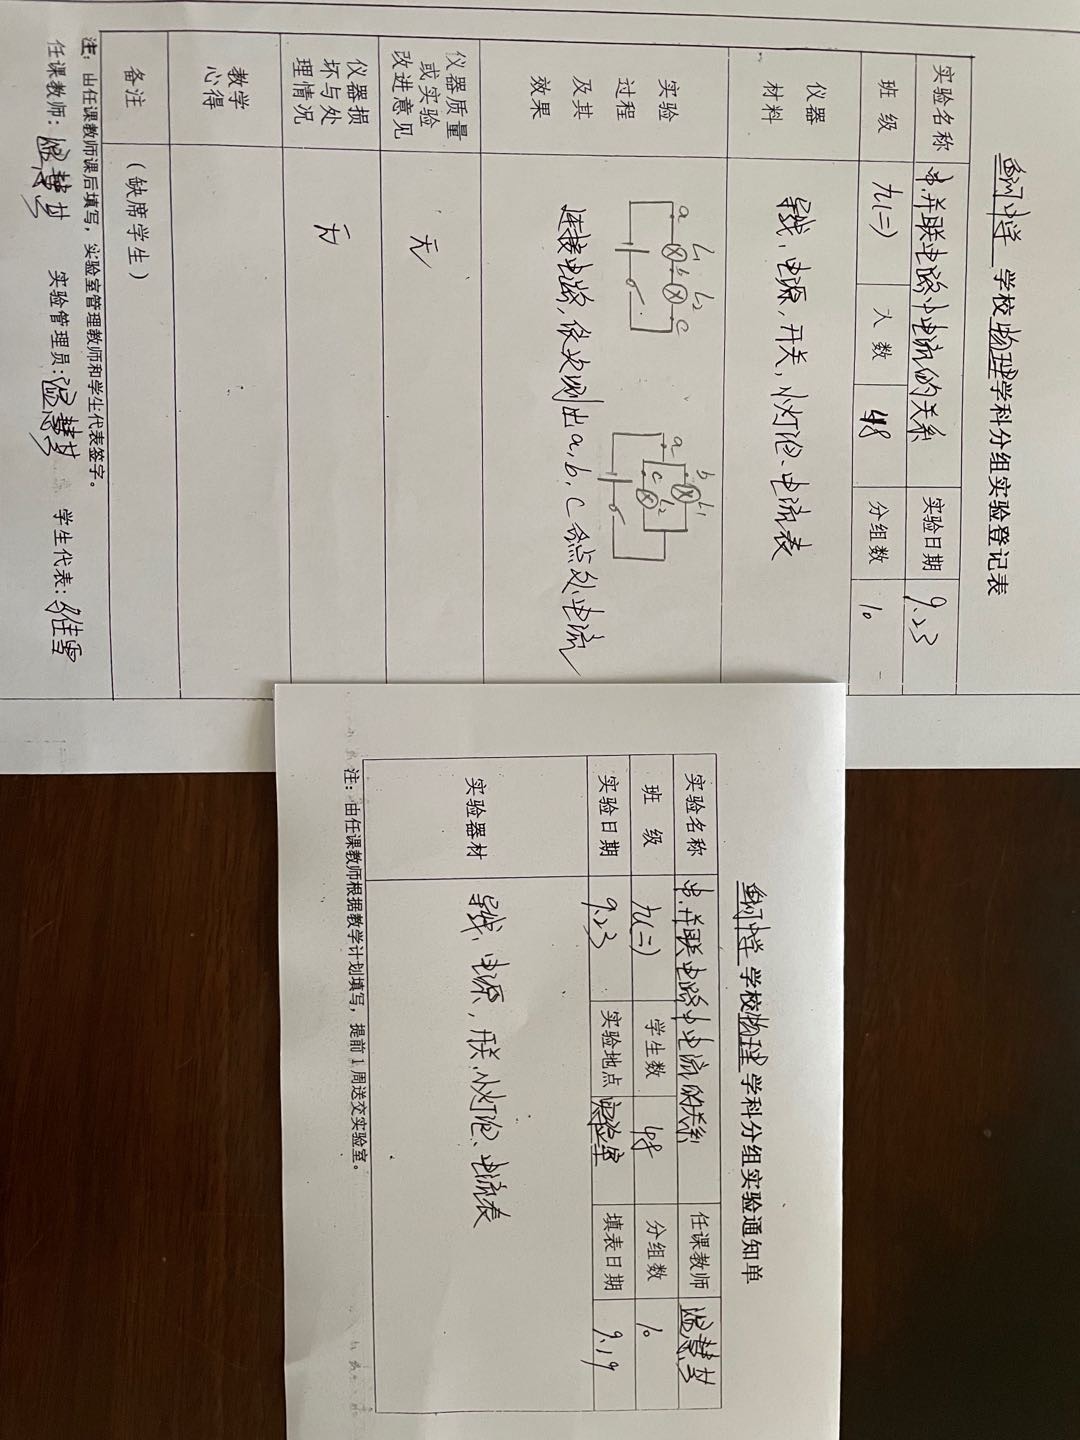 学校物理学科分组实验登记表
实验名称 串、并联电路中电流的关系 实验日期 9.23
班级 九(二) 人数 48 分组数 10
仪器材料 导线、电源，开关，小灯泡、电流表
实验过程及其效果
a L1 b L2 c
a b L1 c L2
连接电路，依次测出a，b，c各点处电流
仪器质量或实验改进意见 无
仪器损坏与处理情况 无
教学心得
备注 （缺席学生）
注：由任课教师课后填写，实验室管理教师和学生代表签字。
任课教师： 实验管理员： 学生代表：
学校物理学科分组实验通知单
实验名称 串、并联电路中电流的关系 任课教师
班级 九(二) 学生数 48 分组数 10
实验日期 9.23 实验地点 实验室 填表日期 9.19
实验器材 导线、电源，开关、小灯泡、电流表
注：由任课教师根据教学计划填写，提前1周送交实验室。